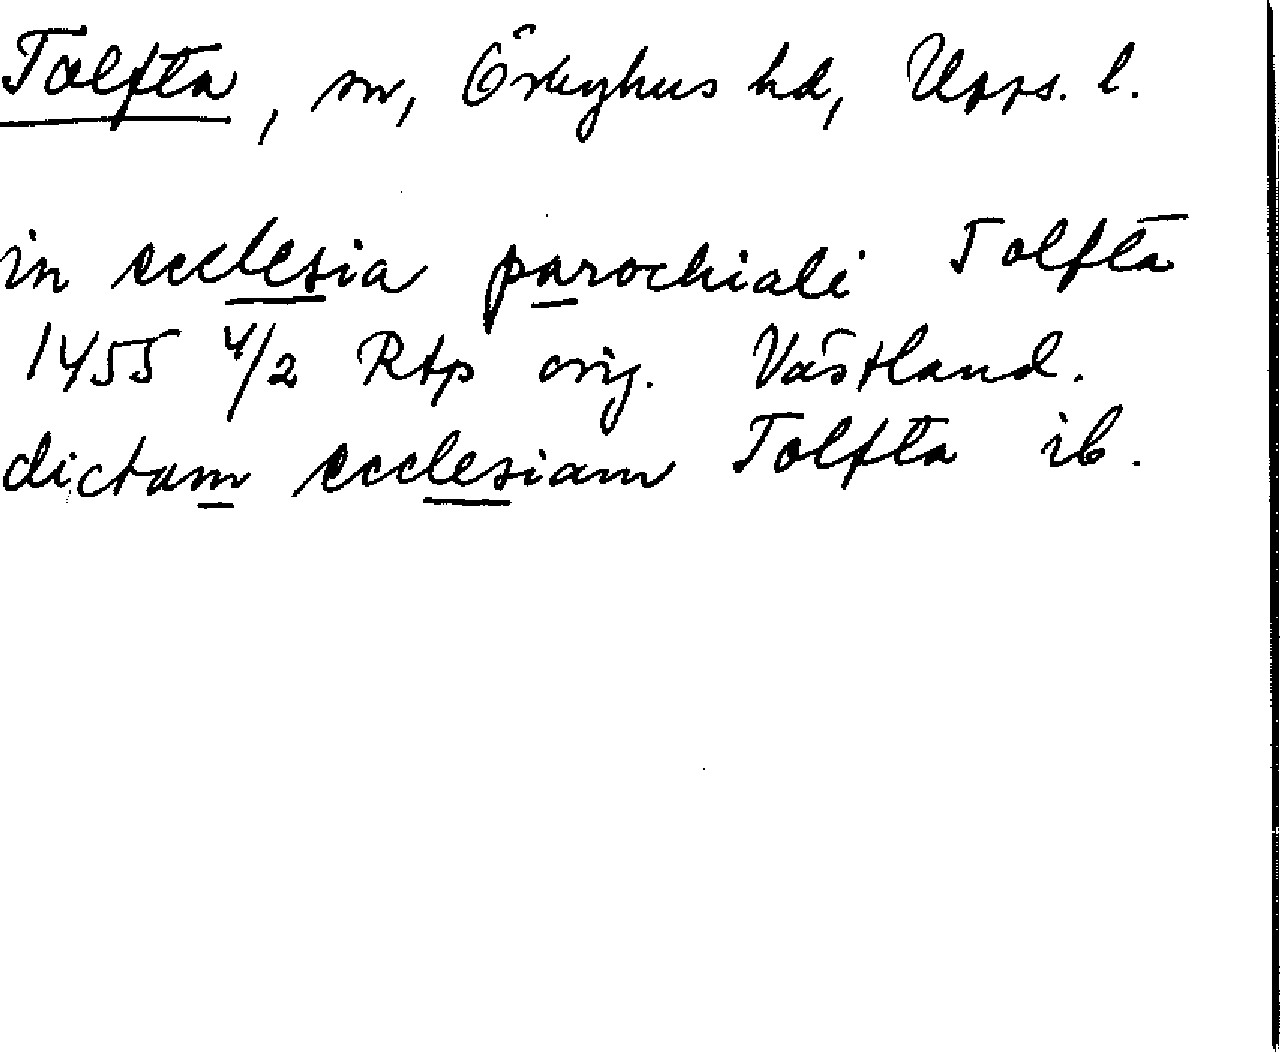 Tolfta, sn, Örbyhus hd, Upps. l.
in ecclesia parochiali Tolfta
1455 4/2 Rtp orig. Västland.
dictam ecclesiam Tolfta ib.